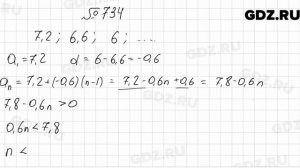 GDZ.RU
№734
7,2 ; 6,6 ; 6 ; ....
a₁=7,2 d=6-6,6=-0,6
aₙ=7,2+(-0,6)(n-1)=7,2-0,6n+0,6=7,8-0,6n
7,8-0,6n>0
0,6n<7,8
n <
GDZ.RU